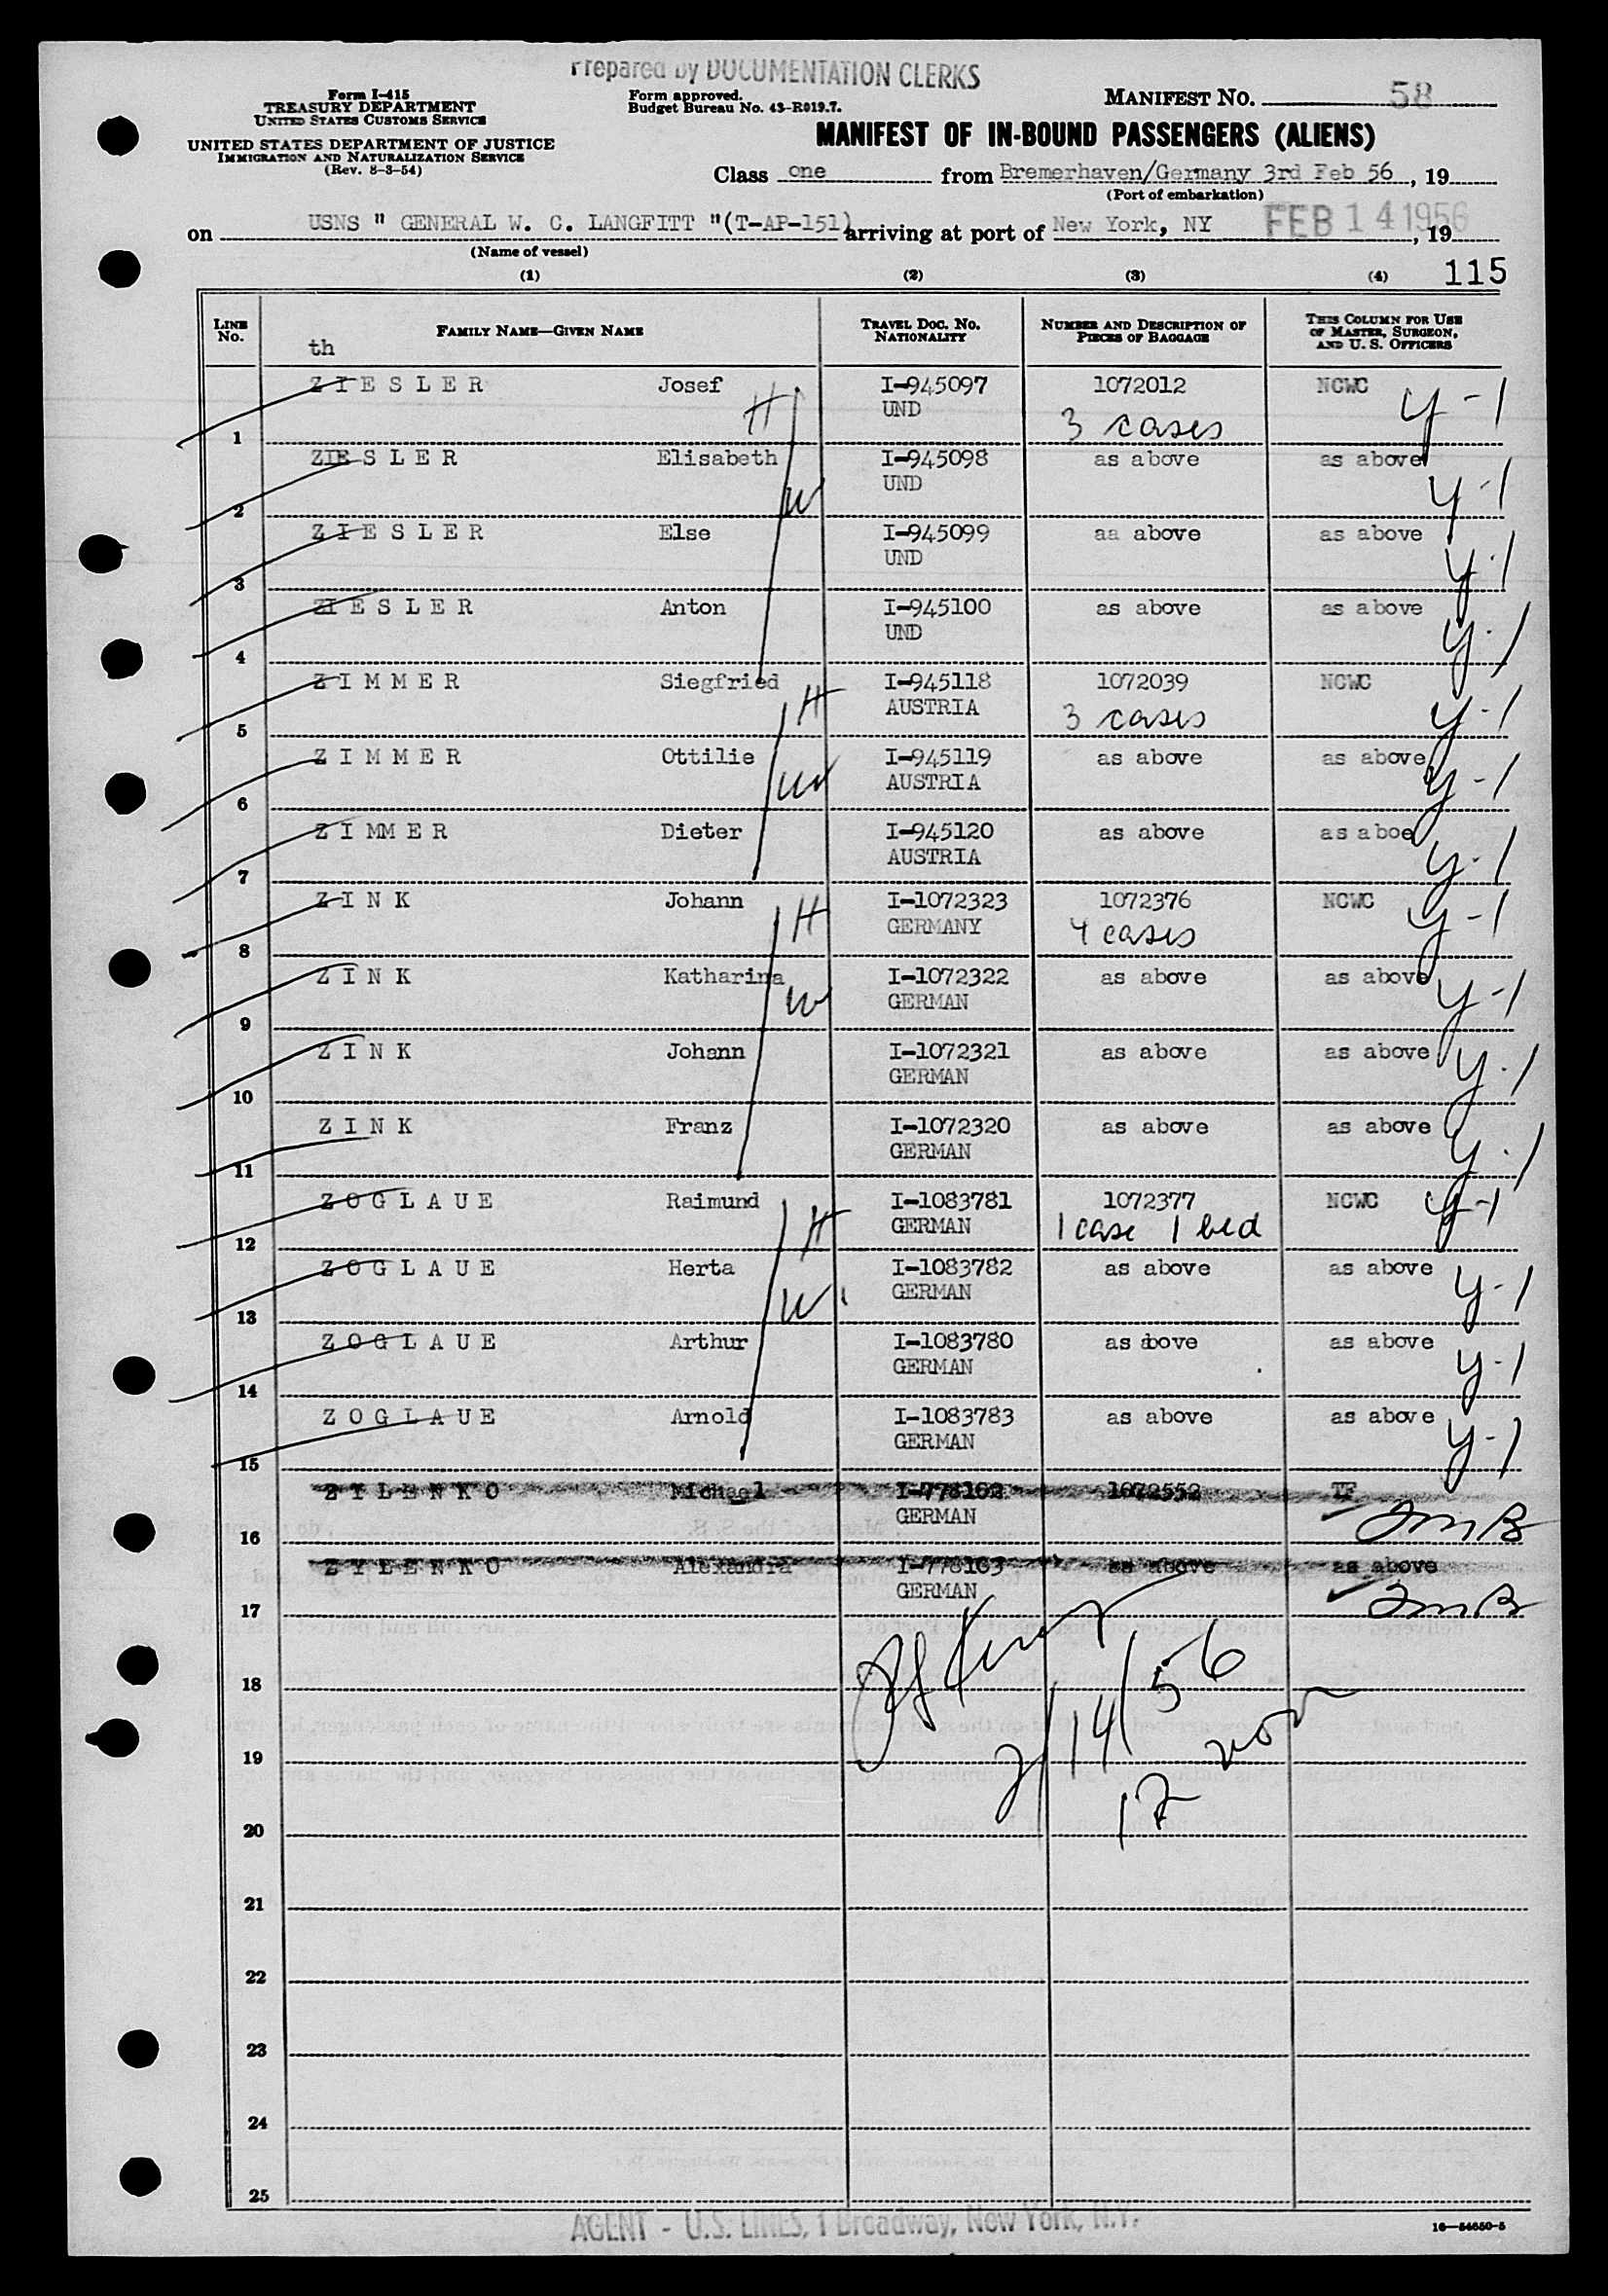 Prepared by DOCUMENTATION CLERKS
Form I-415
TREASURY DEPARTMENT
UNITED STATES CUSTOMS SERVICE
UNITED STATES DEPARTMENT OF JUSTICE
IMMIGRATION AND NATURALIZATION SERVICE
(Rev. 8-3-54)
Form approved.
Budget Bureau No. 43-R019.7.
MANIFEST NO. 58
MANIFEST OF IN-BOUND PASSENGERS (ALIENS)
Class one from Bremerhaven/Germany 3rd Feb 56, 19
(Port of embarkation)
on USNS " GENERAL W. C. LANGFITT "(T-AP-151) arriving at port of New York, NY FEB 14 1956, 19
(Name of vessel)
(1) (2) (3) (4) 115
LINE No. FAMILY NAME—GIVEN NAME TRAVEL DOC. NO. NATIONALITY NUMBER AND DESCRIPTION OF PIECES OF BAGGAGE THIS COLUMN FOR USE OF MASTER, SURGEON, AND U. S. OFFICERS
th
Z I E S L E R Josef I-945097 1072012 NCWC y-1
1 H UND 3 cases
ZIE S L E R Elisabeth I-945098 as above as above y-1
2 W UND
Z I E S L E R Else I-945099 aa above as above y-1
3 UND
ZI E S L E R Anton I-945100 as above as above y-1
4 UND
Z I M M E R Siegfried I-945118 1072039 NCWC y-1
5 H AUSTRIA 3 cases
Z I M M E R Ottilie I-945119 as above as above y-1
6 W AUSTRIA
Z I MM E R Dieter I-945120 as above as a boe y-1
7 AUSTRIA
Z I N K Johann I-1072323 1072376 NCWC y-1
8 H GERMANY 4 cases
Z I N K Katharina I-1072322 as above as above y-1
9 W GERMAN
Z I N K Johann I-1072321 as above as above y-1
10 GERMAN
Z I N K Franz I-1072320 as above as above y-1
11 GERMAN
Z O G L A U E Raimund I-1083781 1072377 NCWC y-1
12 H GERMAN 1 case 1 bed
Z O G L A U E Herta I-1083782 as above as above y-1
13 W GERMAN
Z O G L A U E Arthur I-1083780 as above as above y-1
14 GERMAN
Z O G L A U E Arnold I-1083783 as above as above y-1
15 GERMAN
Z Y L E N K O Michael I-778162 1072552 TF
16 GERMAN
Z Y L E N K O Alexandra I-778163 as above as above
17 GERMAN
18
2/14/56
19
20 17
21
22
23
24
25
AGENT - U.S. LINES, 1 Broadway, New York, N.Y.
16—54650-5